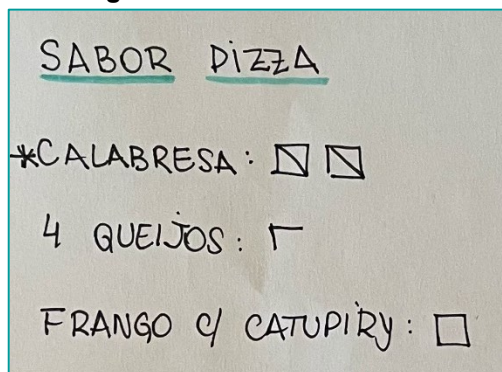 SABOR PIZZA
*CALABRESA:
4 QUEIJOS:
FRANGO C/ CATUPIRY: